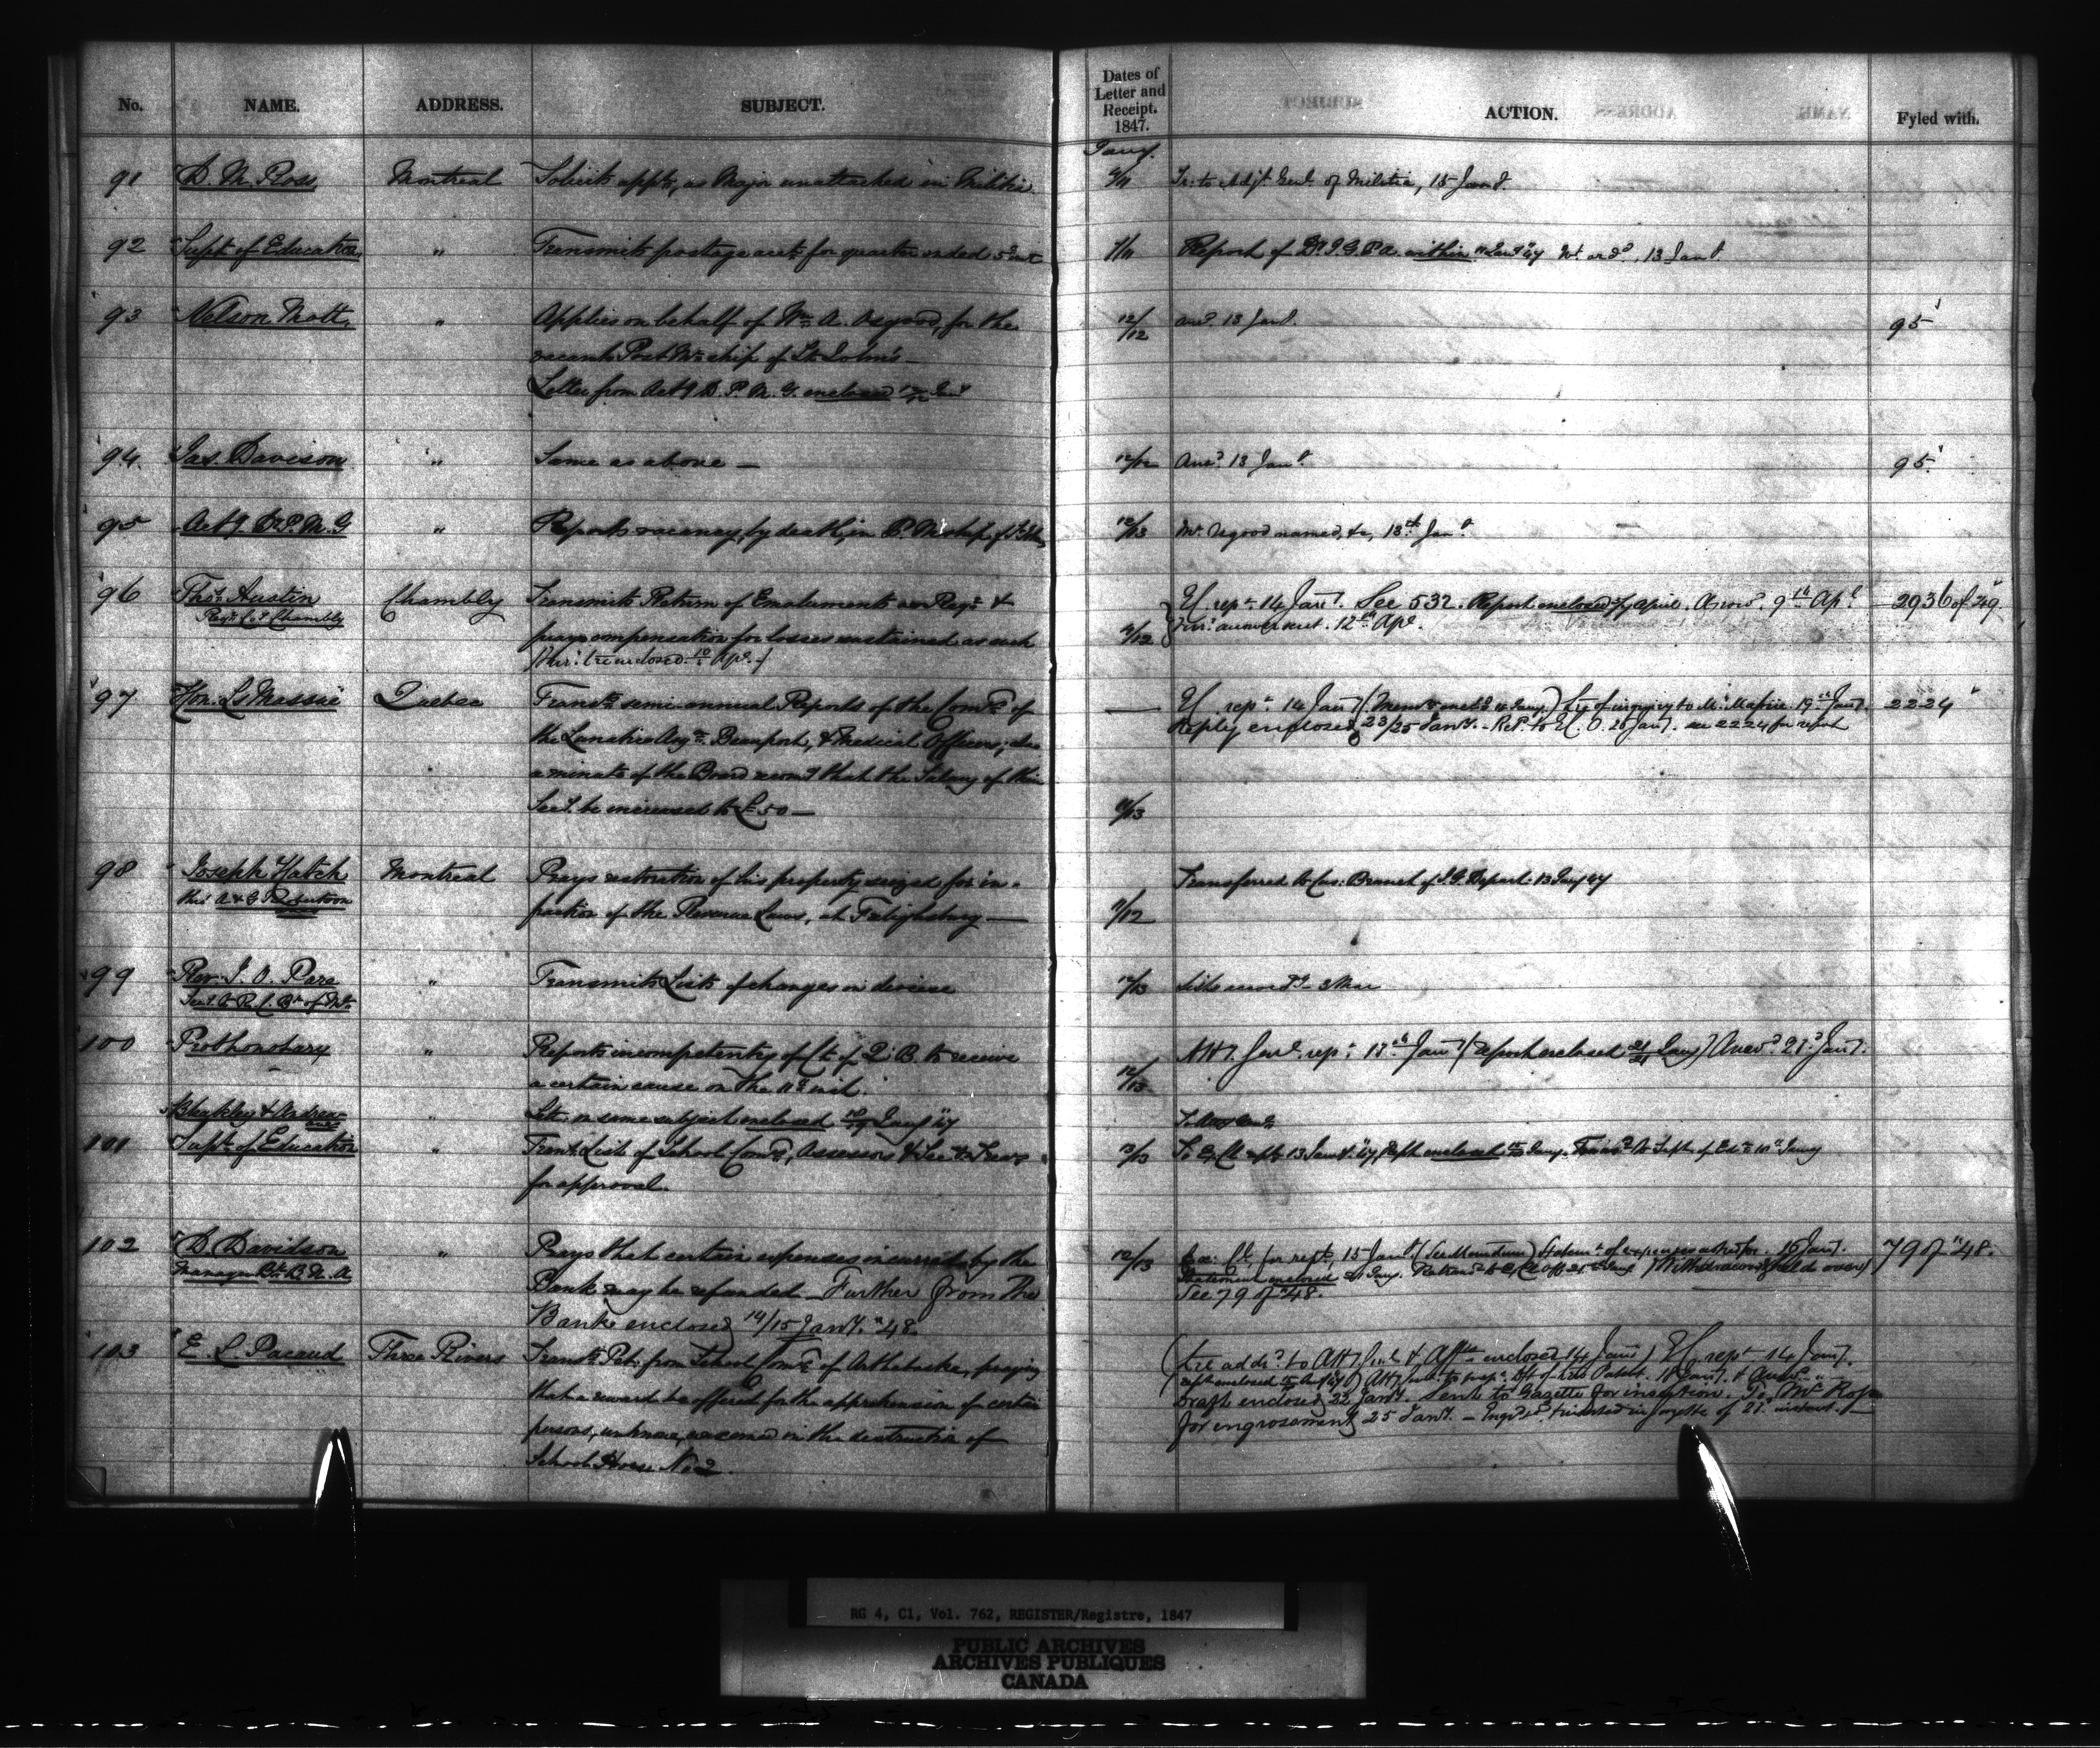 No. NAME. ADDRESS. SUBJECT. Dates of Letter and Receipt. 1847. ACTION. Fyled with.
Jany.
91 D. M. Ross Montreal Solicits appt, as Major unattached in Militia 9/11 Tr. to Adjt Genl of Militia, 15 Jany.
92 Supt of Education " Transmits postage acct for quarter ended 5 inst 7/11 Report of within 13 Jany.
93 Nelson Mott " Applies on behalf of Wm A. Osgood, for the 12/12 ansd 13 Jany. 95
vacant Post Mr ship of St Johns
Letter from Actg D. P. M. G. enclosed
94 Jas. Davison " Same as above — 12/12 Ansd 13 Jany. 95
95 Actg D. P. M. G " Reports vacancy, by death, in P. Mship of St Johns 12/13 Mr Osgood named, &c, 13th Jany.
96 Thos Austin Chambly Transmits Return of Emoluments as Regr & El. rept 14 Jany. See 532. Report enclosed april. Answd. 9th Apl 2936 of 49.
Regr Co Chambly prays compensation for losses sustained as such 12th Apl.
enclosed 10 Apl.
97 Hon. Ls Massue Quebec Transts semi-annual Reports of the Comrs of — El. rept 14 Jany (Memo 14 Jany.) Ltr of inquiry to Mr Massue 19th Jany. 2224
the Lunatic Asym Beauport, & Medical Officers; also Reply enclosed 23/25 Jany. - Ref. to El. O. 26 Jany. see 2224 for report
a minute of the Board recomg that the Salary of their
Secy. be increased to £50 — 11/13
98 Joseph Hatch Montreal Prays restoration of his property seized for in- Transferred to Cus: Branch of I. G. Depart: 13 Jany 47
thro' A & G Robertson fraction of the Revenue Laws, at Frelighsburg — 11/12
99 Rev. J. O. Pare " Transmits Lists of changes in diocese 12/13 Lists
Secy. to R. C. Bp of Mt.
100 Prothonotary " Reports incompetentcy of Ct of Q. B. to receive Atty. Genl. rept 13th Jany (Report enclosed 21 Jany) Answd 21 Jany.
a certain cause on the 11th inst. 12/13
Bleakley & Andrews " Letr on same subject enclosed Jany 47
101 Supt of Education " Trants Lists of School Comrs, Assessors & Sec & Treas 13/13 To Ex. Cl. rept 13 Jany 47, Rept enclosed Jany. to Supt of Edn Jany
for approval.
102 D. Davidson " Prays that certain expenses incurred by the 12/13 Exe: Cl, for rept, 15 Jany (See Memdum) Statemt of expenses asked for. 16 Jany. 79 of "48.
Manager Bk B. N. A. Bank may be refunded — Further from the Statement enclosed 21 Jany. (Withdrawn & held over)
Bank enclosed 14/15 Jany. "48. See 79 of "48.
103 E. L. Pacaud Three Rivers Transts Petn from School Comrs of Arthabaska, praying (Lre addd to Atty Genl & Affts enclosed 14 Jany) El. rept 14 Jany.
that a reward be offered for the apprehension of certain Draft enclosed 22 Jany. Sent to Gazette for insertion. To Mr Ross
persons, unknown, concerned in the destruction of for engrossment 25 Jany. — Engrd & inserted in gazette of 21 instant. —
School House No 2.
RG 4, C1, Vol. 762, REGISTER/Registre, 1847
PUBLIC ARCHIVES
ARCHIVES PUBLIQUES
CANADA